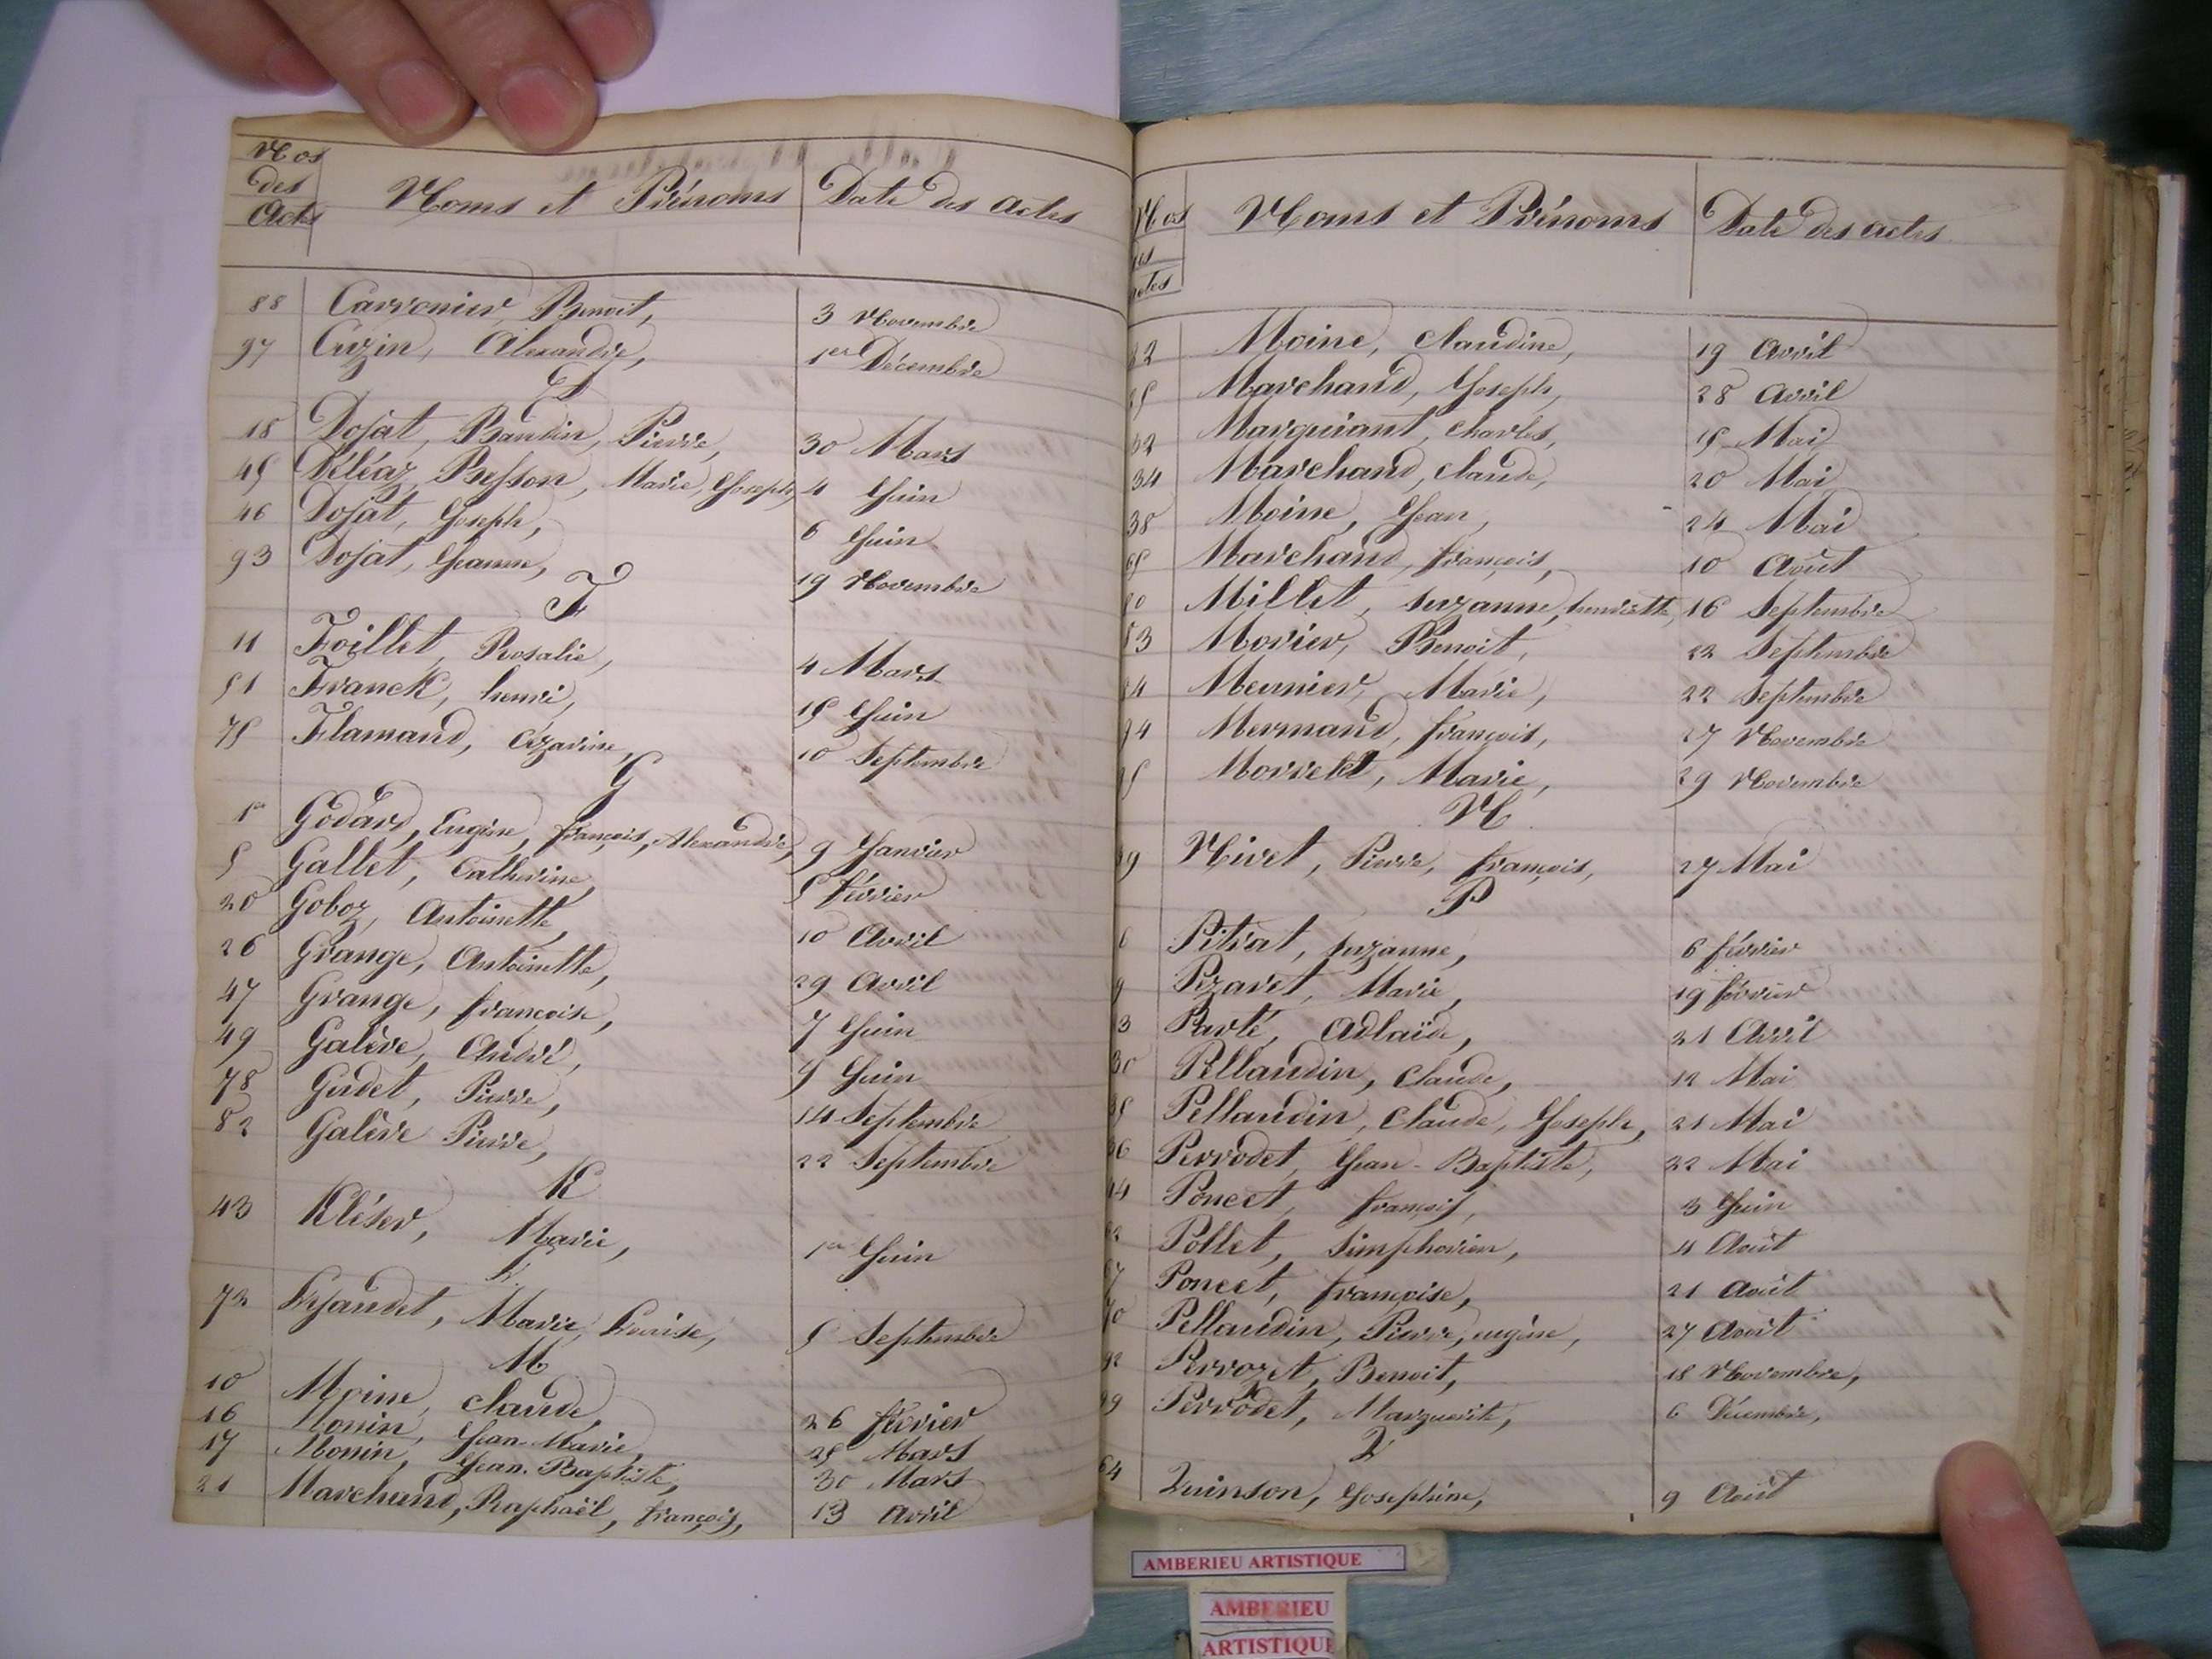 Nos
des
Actes
Noms et Prénoms
Date des actes
88 Carronier, Benoit, 3 Novembre
97 Cuzin, Alexandre, 1er Décembre
D
18 Dojat, Baudin, Pierre, 30 Mars
45 Kléaz Besson, Marie, Joseph, 4 Juin
46 Dojat, Joseph, 6 Juin
93 Dojat, Jeanne, 19 Novembre
F
11 Foillet, Rosalie, 4 Mars
51 Franck, henri, 15 Juin
75 Flamand, Cézarine, 10 Septembre
G
1er Godard, Eugène, françois, Alexandre, 9 Janvier
5 Gallet, Catherine, 5 février
20 Goboz, Antoinette, 10 Avril
26 Grange, Antoinette, 29 Avril
47 Grange, françoise, 7 Juin
49 Galève, André, 9 Juin
78 Gudet, Pierre, 14 Septembre
82 Galève Pierre, 22 Septembre
K
43 Kléser, Marie, 1er Juin
L
72 Lejaudet, Marie, Louise, 5 Septembre
M
10 Moine, claude, 26 février
16 Monin, Jean-Marie, 25 Mars
17 Monin, Jean-Baptiste, 30 Mars
21 Marchand, Raphaël, françois, 13 Avril
Nos
des
actes
Noms et Prénoms
Date des actes
22 Moine, claudine, 19 Avril
25 Marchand, Joseph, 28 Avril
32 Marguiant, charles, 15 Mai
34 Marchand, claude, 20 Mai
38 Moine, Jean, 24 Mai
65 Marchand, françois, 10 Août
80 Millet, suzanne, henriette, 16 Septembre
83 Morier, Benoit, 22 Septembre
84 Meunier, Marie, 22 Septembre
94 Mermand, françois, 27 Novembre
95 Morrelet, Marie, 29 Novembre
N
39 Nivet, Pierre, françois, 27 Mai
P
6 Pitrat, suzanne, 6 février
9 Pezaret, Marie, 19 février
3 Parté, Adlaïde, 21 Avril
30 Pellaudin, claude, 12 Mai
35 Pellaudin, claude, Joseph, 21 Mai
36 Perrodet, Jean-Baptiste, 22 Mai
44 Poncet, françois, 3 Juin
62 Pollet, simphorien, 4 Août
67 Poncet, françoise, 21 Août
70 Pellaudin, Pierre, eugène, 27 Août
92 Perrozet, Benoit, 18 Novembre,
99 Perrodet, Marguerite, 6 Décembre,
Q
64 Quinson, Josephine, 9 Août
AMBERIEU ARTISTIQUE
AMBERIEU
ARTISTIQUE